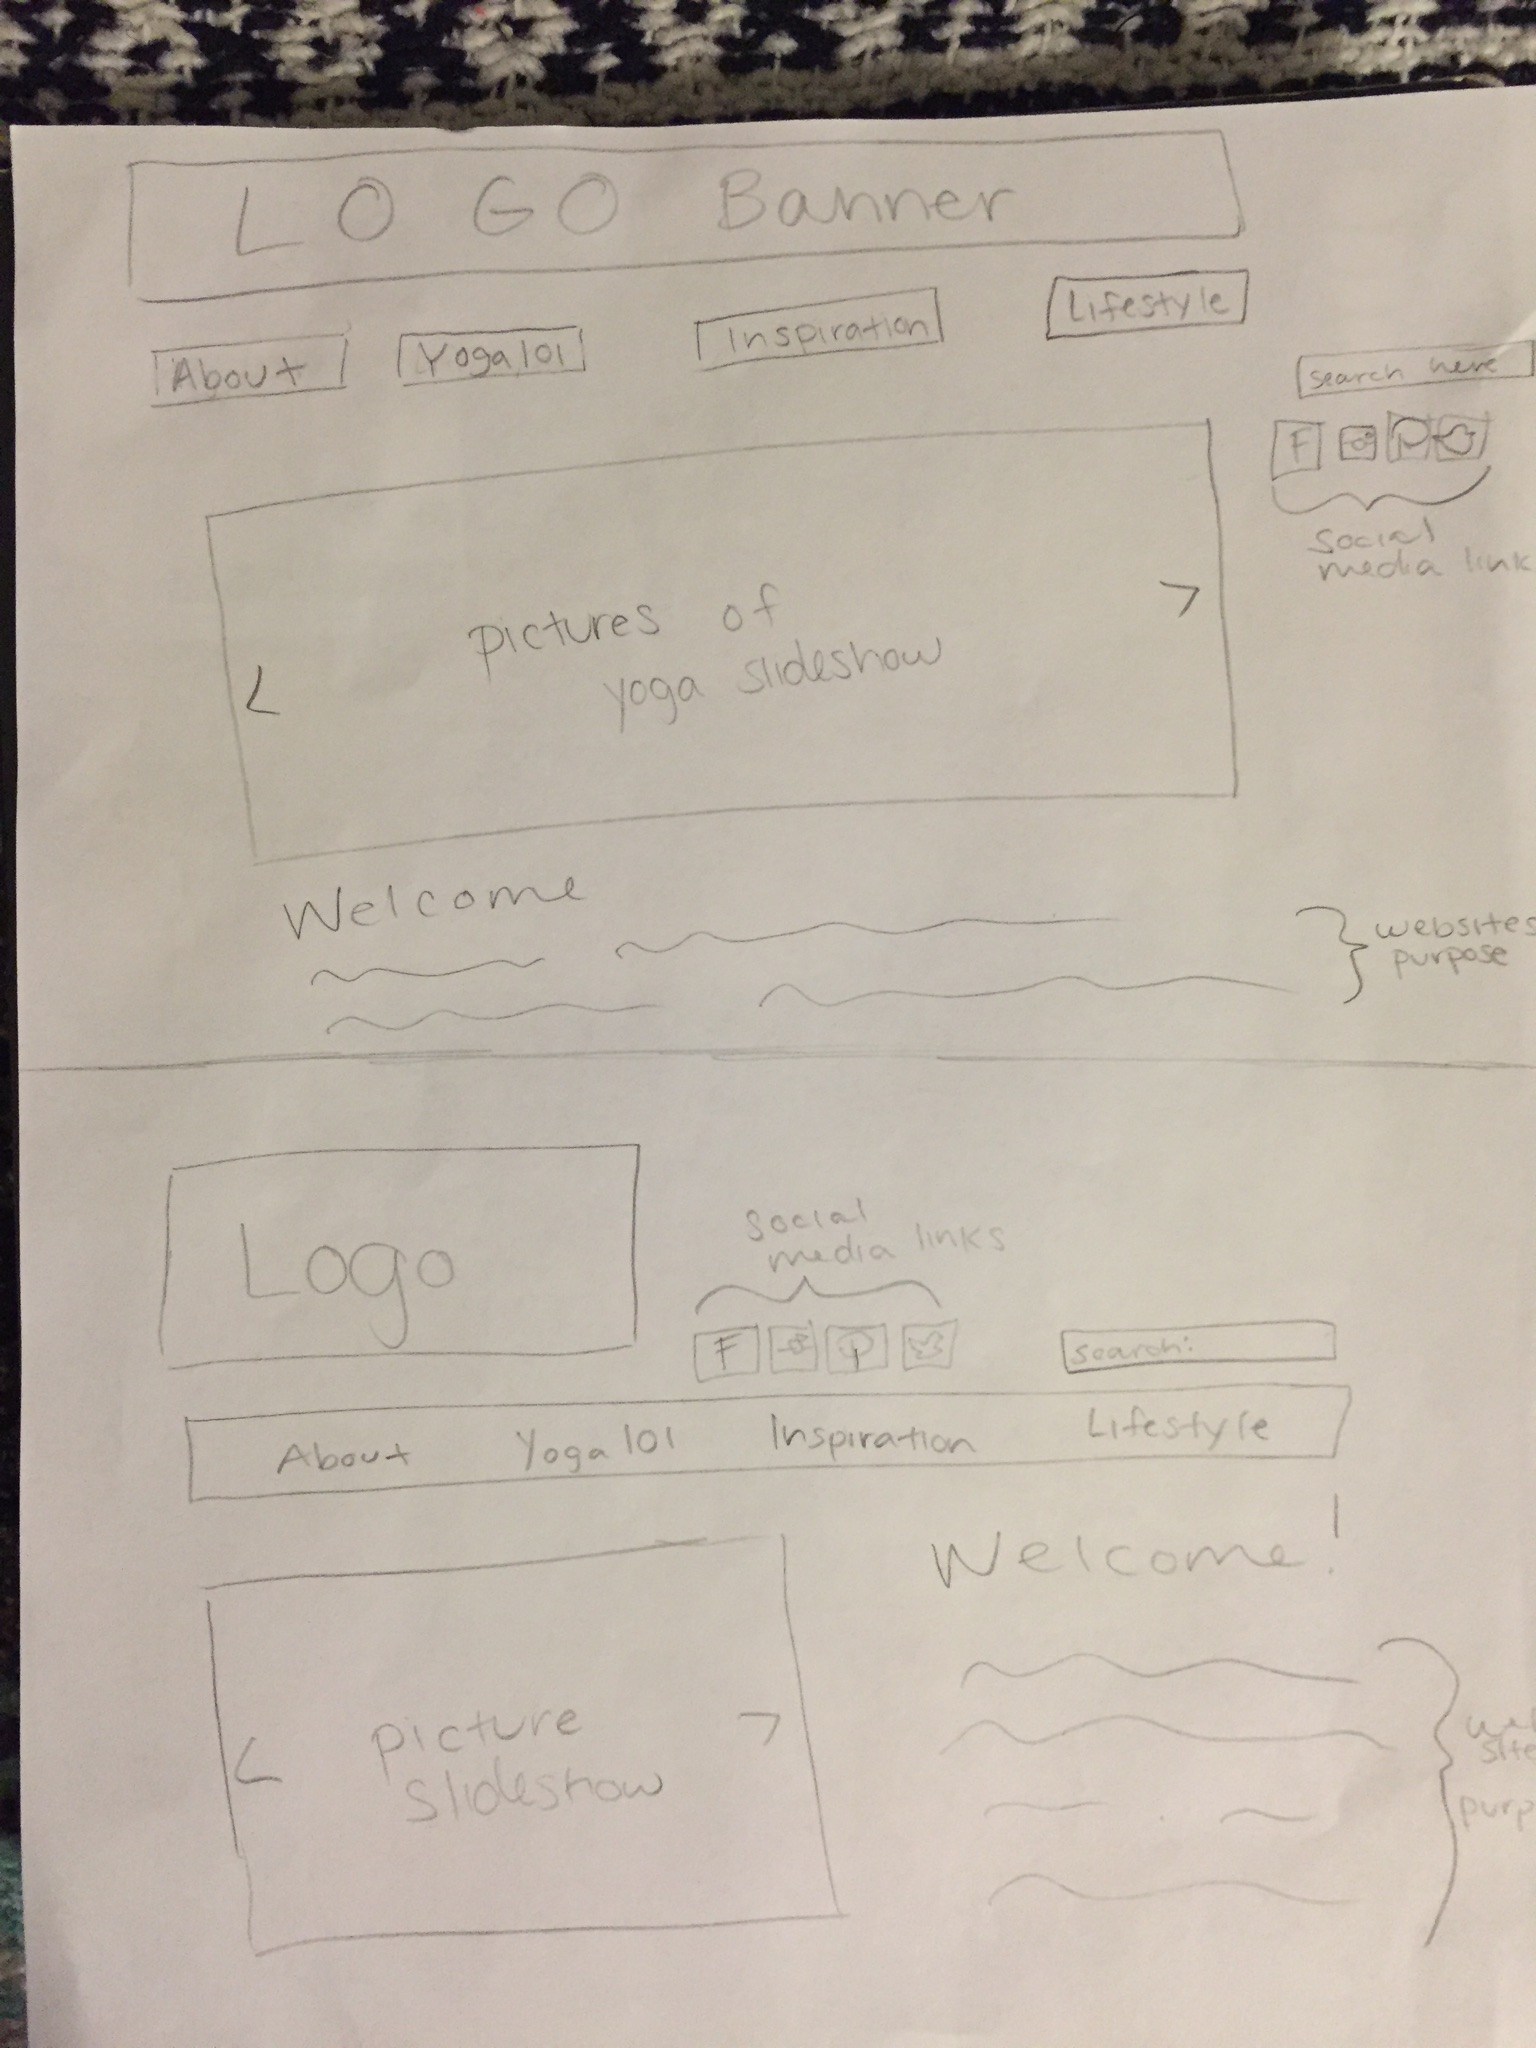 LOGO Banner
About Yoga 101 Inspiration Lifestyle
search here
F
social
media link
pictures of
yoga slideshow
< >
Welcome
websites
purpose
Logo
social
media links
F P
search:
About Yoga 101 Inspiration Lifestyle
Welcome!
picture
slideshow
< >
site
purp